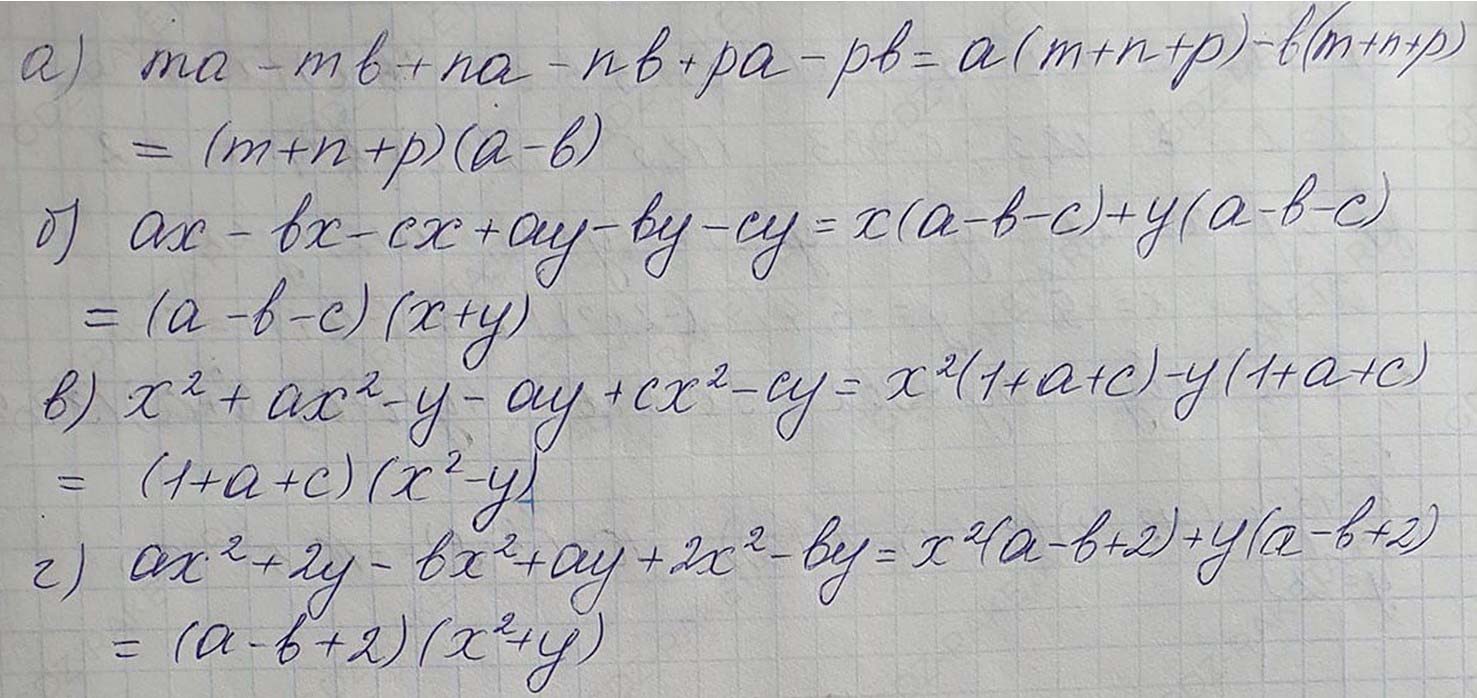 а) ma - mb + na - nb + pa - pb = a(m+n+p) - b(m+n+p)
= (m+n+p)(a-b)
б) ax - bx - cx + ay - by - cy = x(a-b-c) + y(a-b-c)
= (a-b-c)(x+y)
в) x² + ax² - y - ay + cx² - cy = x²(1+a+c) - y(1+a+c)
= (1+a+c)(x²-y)
г) ax² + 2y - bx² + ay + 2x² - by = x²(a-b+2) + y(a-b+2)
= (a-b+2)(x²+y)